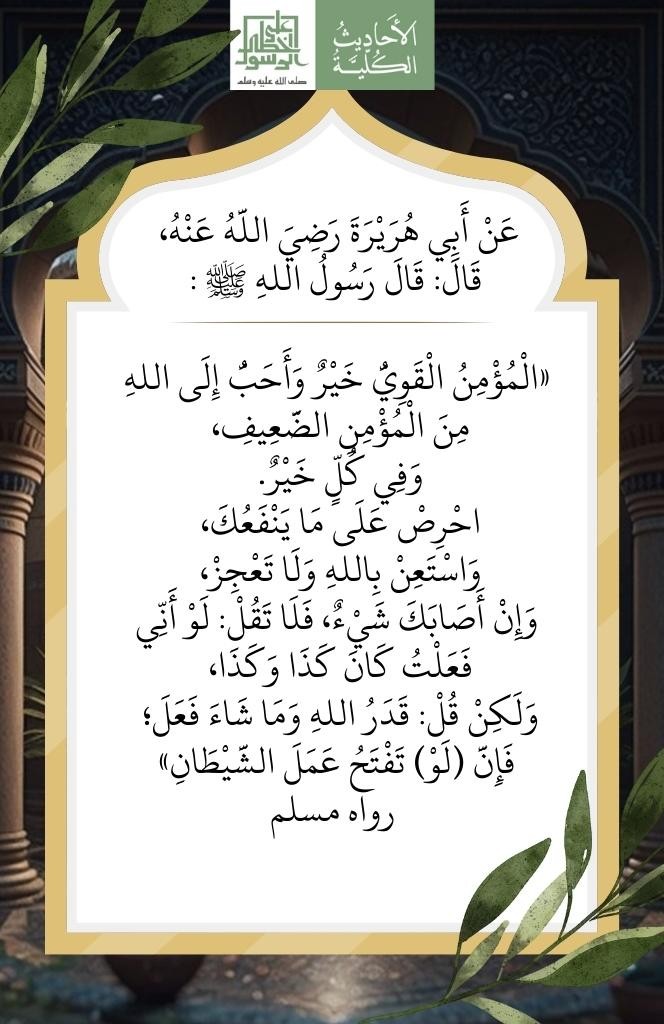 الأحاديث
الكلية
على
خطى
الرسول
صلى الله عليه وسلم
عَنْ أَبِي هُرَيْرَةَ رَضِيَ اللّهُ عَنْهُ،
قَالَ: قَالَ رَسُولُ اللهِ ﷺ :
«الْمُؤْمِنُ الْقَوِيُّ خَيْرٌ وَأَحَبُّ إِلَى اللهِ
مِنَ الْمُؤْمِنِ الضَّعِيفِ،
وَفِي كُلٍّ خَيْرٌ.
احْرِصْ عَلَى مَا يَنْفَعُكَ،
وَاسْتَعِنْ بِاللهِ وَلَا تَعْجِزْ،
وَإِنْ أَصَابَكَ شَيْءٌ، فَلَا تَقُلْ: لَوْ أَنِّي
فَعَلْتُ كَانَ كَذَا وَكَذَا،
وَلَكِنْ قُلْ: قَدَرُ اللهِ وَمَا شَاءَ فَعَلَ؛
فَإِنّ (لَوْ) تَفْتَحُ عَمَلَ الشّيْطَانِ»
رواه مسلم